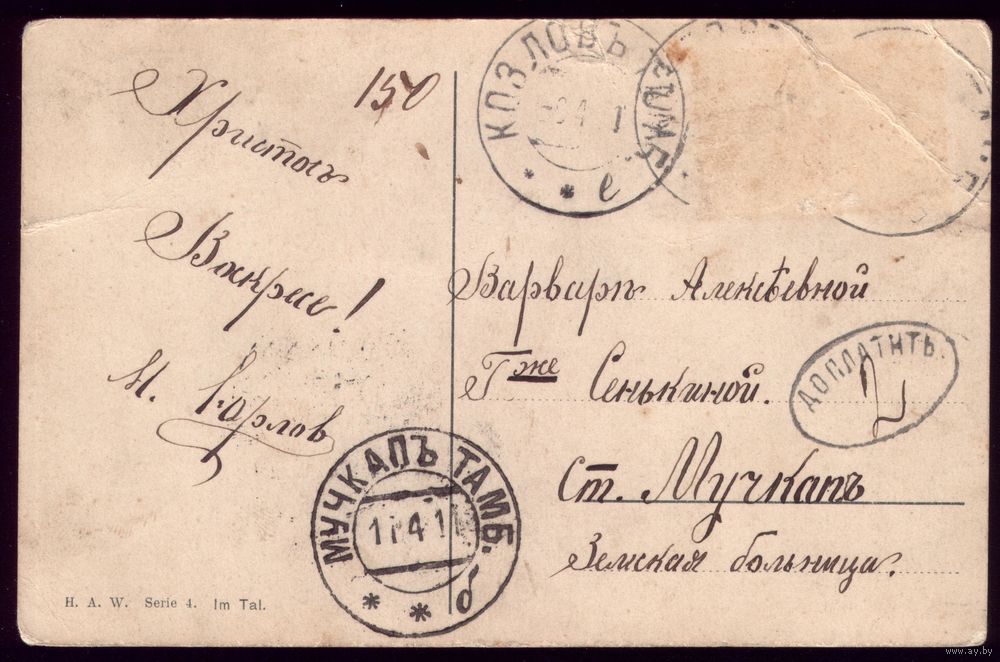 150
Христосъ
Воскресе!
М. Юрлов
КОЗЛОВЪ ТАМБ.
е
Варварѣ Алексѣевной
Г-же Сенькиной.
ДОПЛАТИТЬ.
2
Ст. Мучкапъ
Земская больница.
МУЧКАПЪ ТАМБ.
11 4 1
б
H. A. W. Serie 4. Im Tal.
www.ay.by